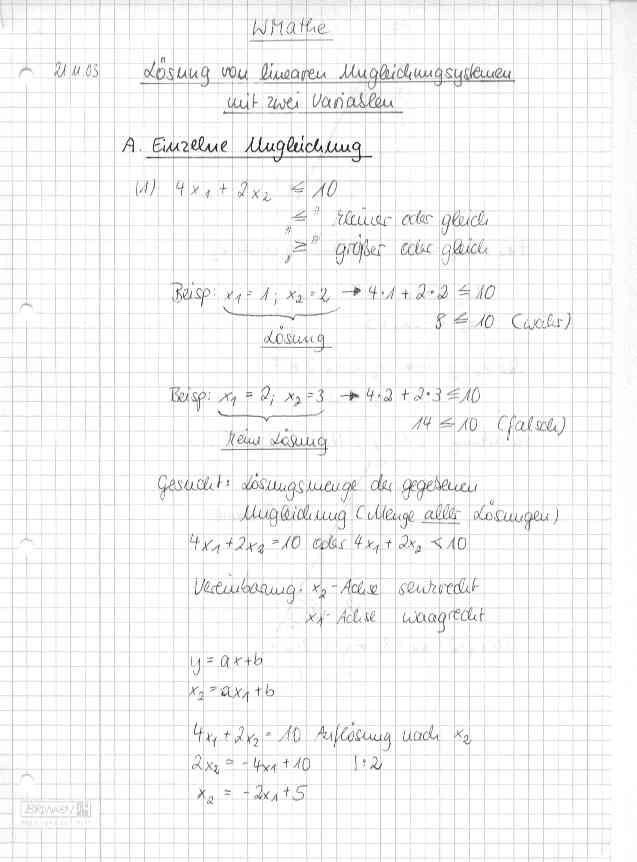 WMathe
21.11.03 Lösung von linearen Ungleichungsystemen
mit zwei Variablen
A. Einzelne Ungleichung
(1) 4x₁ + 2x₂ ≤ 10
„≤" kleiner oder gleich
„≥" größer oder gleich
Beisp: x₁ = 1; x₂ = 2 → 4·1 + 2·2 ≤ 10
8 ≤ 10 (wahr)
Lösung
Beisp: x₁ = 2; x₂ = 3 → 4·2 + 2·3 ≤ 10
14 ≤ 10 (falsch)
keine Lösung
Gesucht: Lösungsmenge der gegebenen
Ungleichung (Menge aller Lösungen)
4x₁ + 2x₂ = 10 oder 4x₁ + 2x₂ < 10
Vereinbarung: x₂-Achse senkrecht
x₁-Achse waagrecht
y = ax + b
x₂ = ax₁ + b
4x₁ + 2x₂ = 10 Auflösung nach x₂
2x₂ = -4x₁ + 10 |:2
x₂ = -2x₁ + 5
BRUNNEN